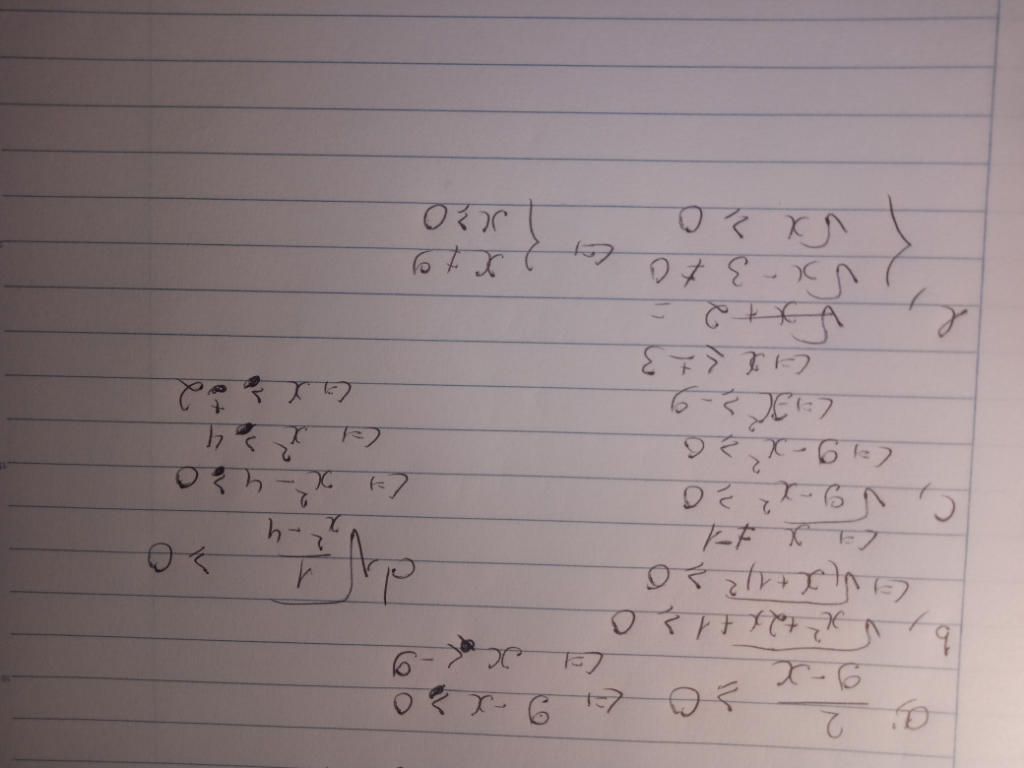 a, 2/(9-x) ≥ 0 <=> 9-x ≥ 0
<=> x < -9
b, √(x²+2x+1) ≥ 0
<=> √(x+1)² ≥ 0
<=> x ≠ -1
c, √(9-x²) ≥ 0
<=> 9-x² ≥ 0
<=> x² ≥ -9
<=> x ≤ ±3
d, √(1/(x²-4)) ≥ 0
<=> x²-4 ≥ 0
<=> x² ≥ 4
<=> x ≥ ±2
e, √x+2 =
{ √x - 3 ≠ 0 <=> { x ≠ 9
√x ≥ 0 x ≥ 0